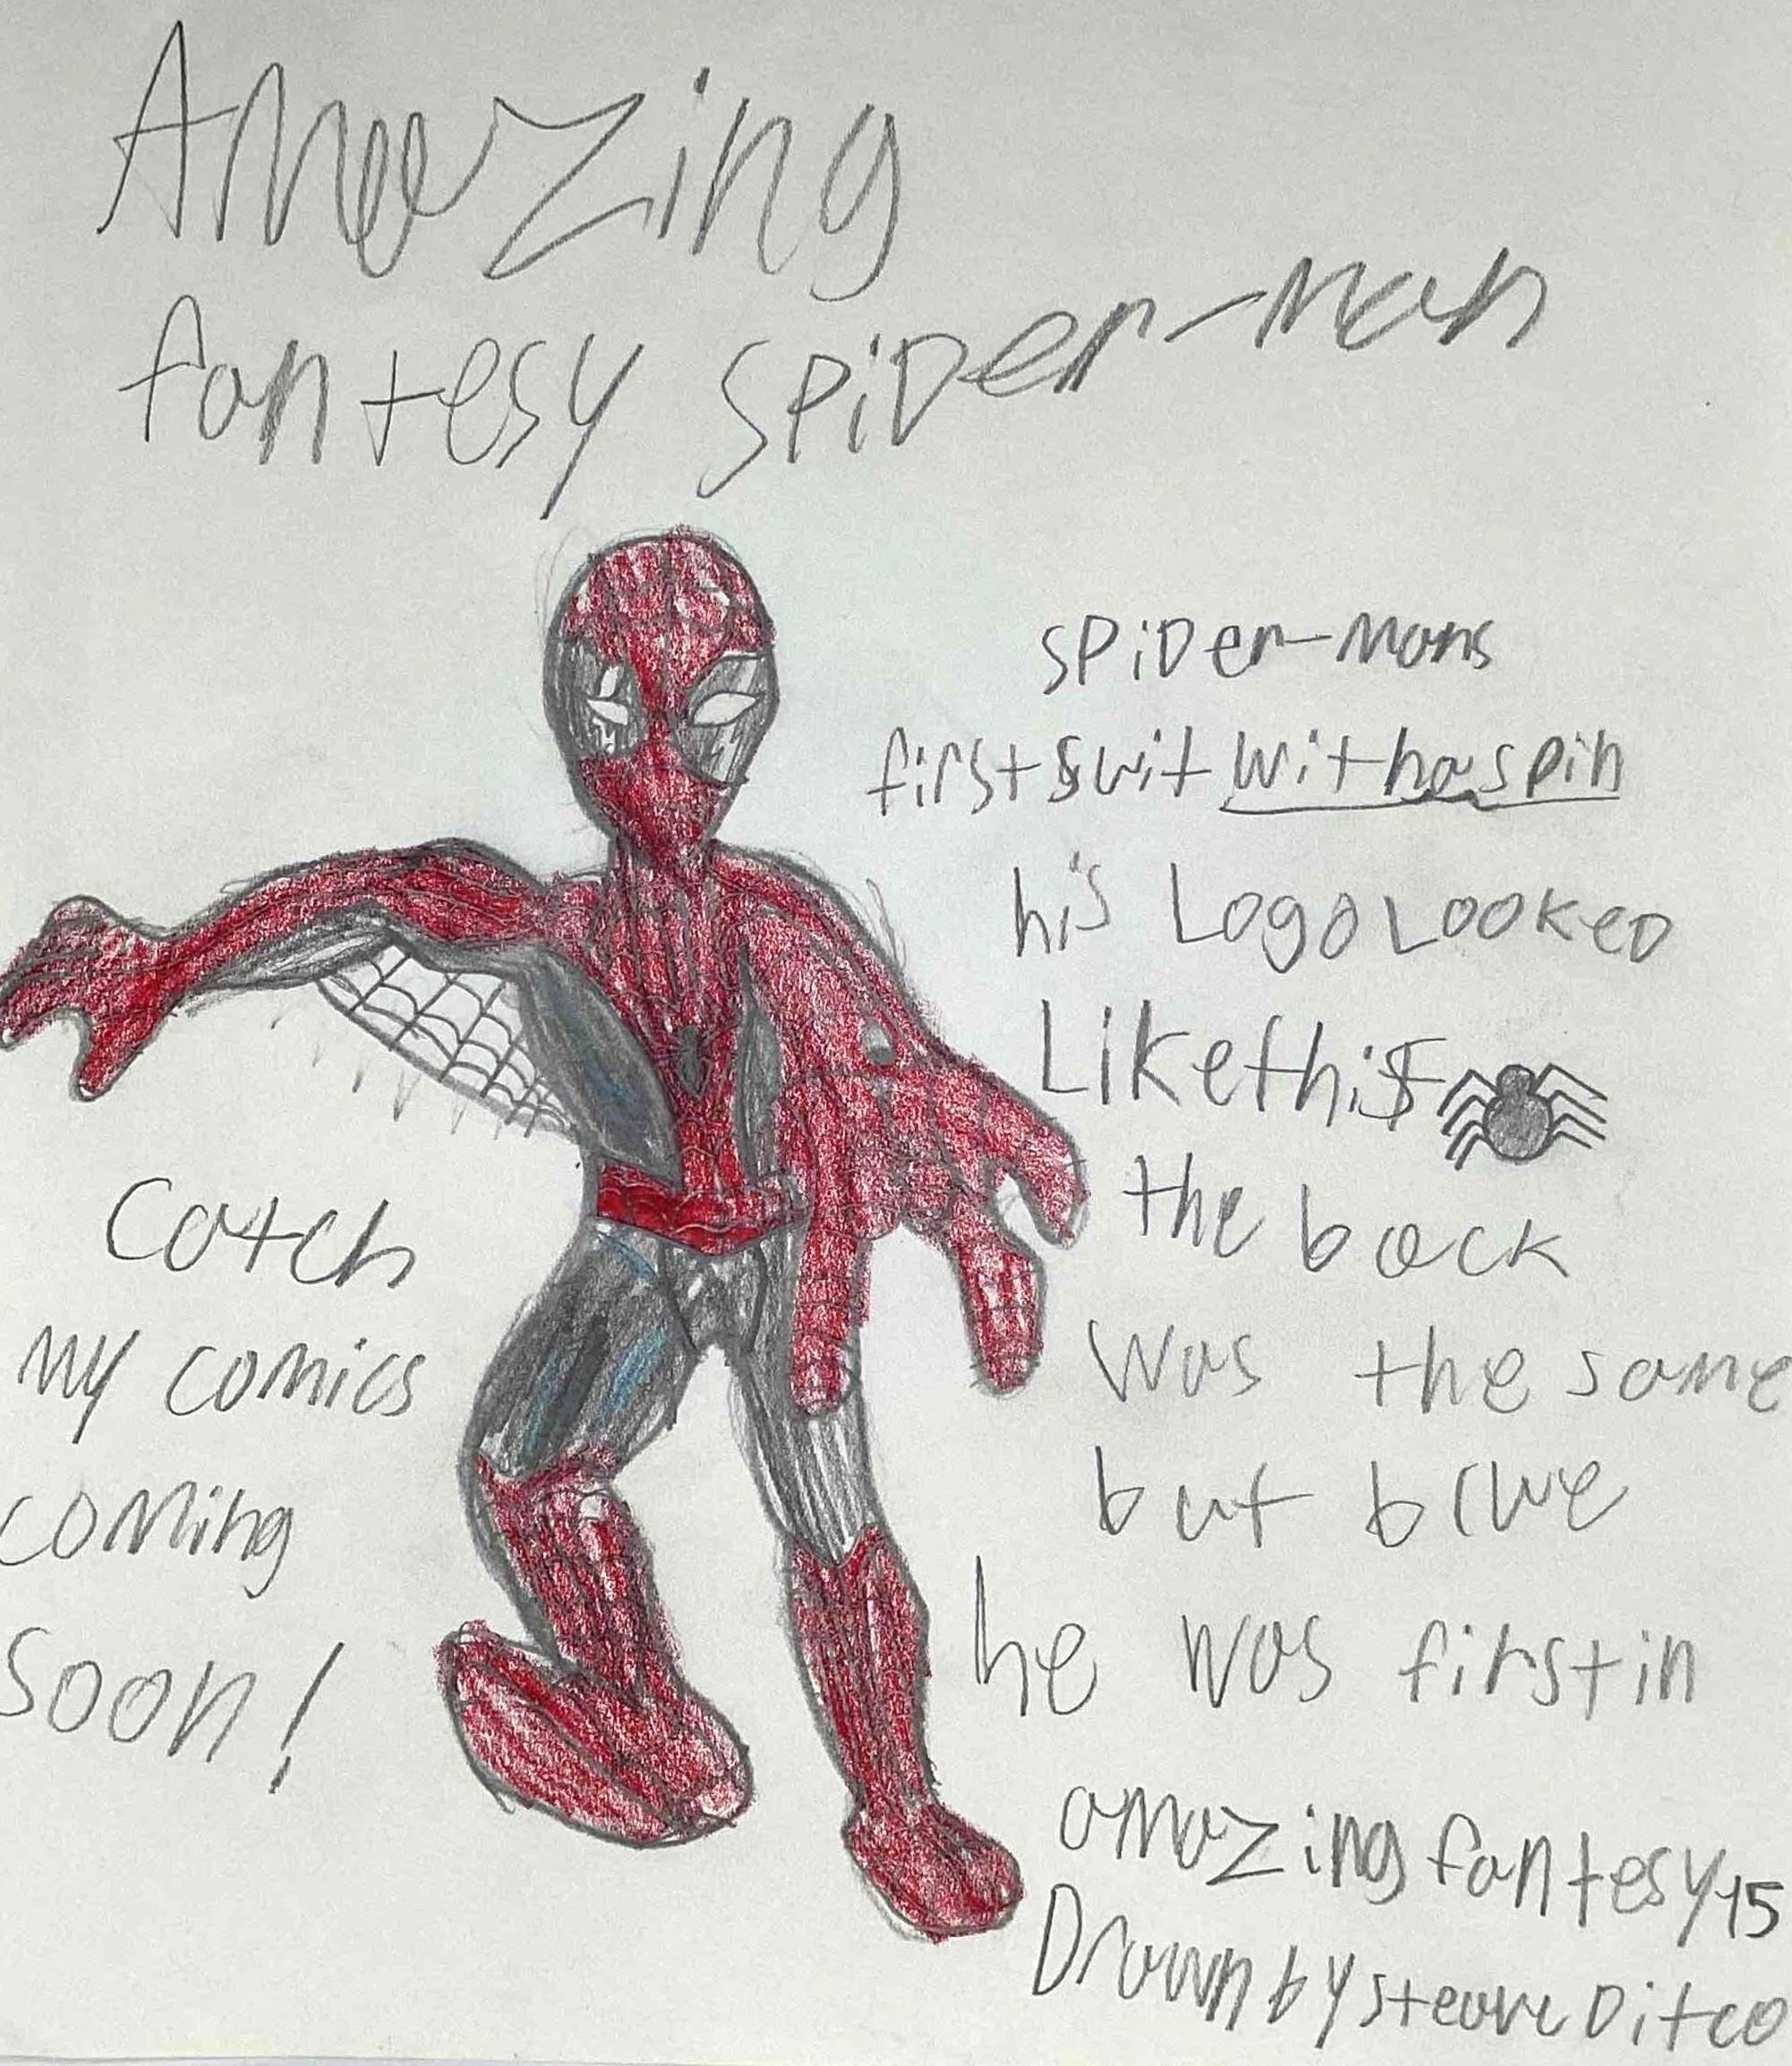 Amazing
fantesy SPiDer-man
SPiDer-mans
first suit with a spin
his Logo LOOKeD
Like this
the back
was the same
but blue
he was first in
amazing fantesy 15
Drawn by steave Ditco
Catch
my comics
coming
soon!